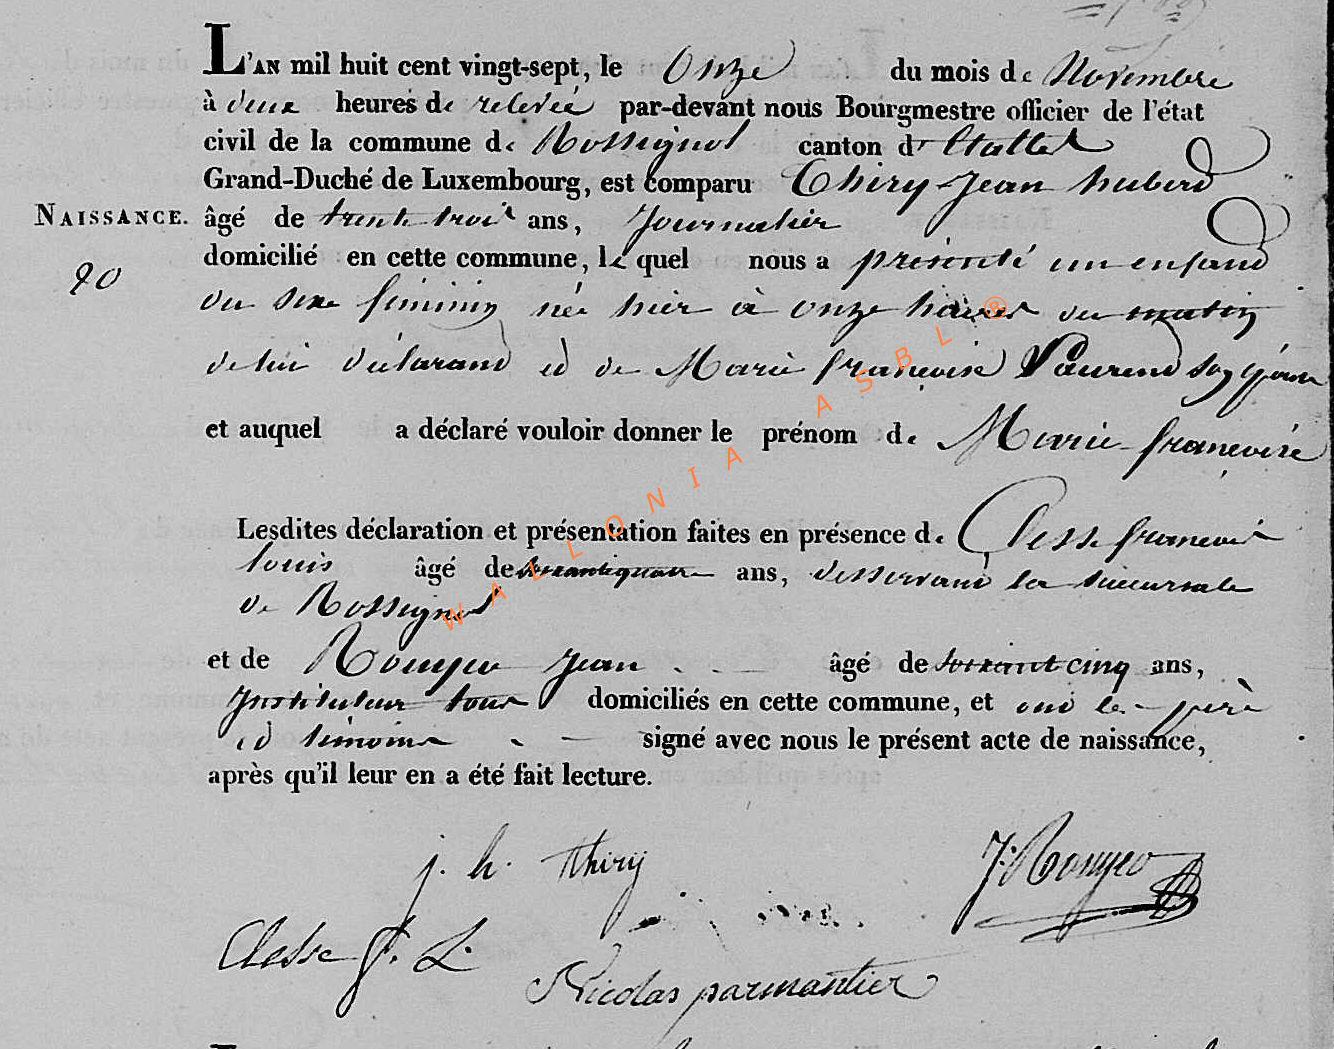 L'AN mil huit cent vingt-sept, le Onze du mois de Novembre
à deux heures de relevée par-devant nous Bourgmestre officier de l'état
civil de la commune de Rossignol canton d'Etalle
Grand-Duché de Luxembourg, est comparu Thiry Jean hubert
NAISSANCE. âgé de trente trois ans, Journalier
domicilié en cette commune, le quel nous a présenté un enfand
20
du sexe féminin née hier à onze heures du matin
de lui déclarand et de Marie françoise Laurend son épouse
et auquel a déclaré vouloir donner le prénom de Marie françoise
Lesdites déclaration et présentation faites en présence de Clesse françois
louis âgé de ans, desservand la succursale
de Rossignol
et de Rongeo Jean âgé de soixant cinq ans,
Instituteur tous domiciliés en cette commune, et ont le père
et témoins signé avec nous le présent acte de naissance,
après qu'il leur en a été fait lecture.
j. h. thiry J: Rongeo
Clesse f. L.
Nicolas parmantier
WALLONIA ASBL ®